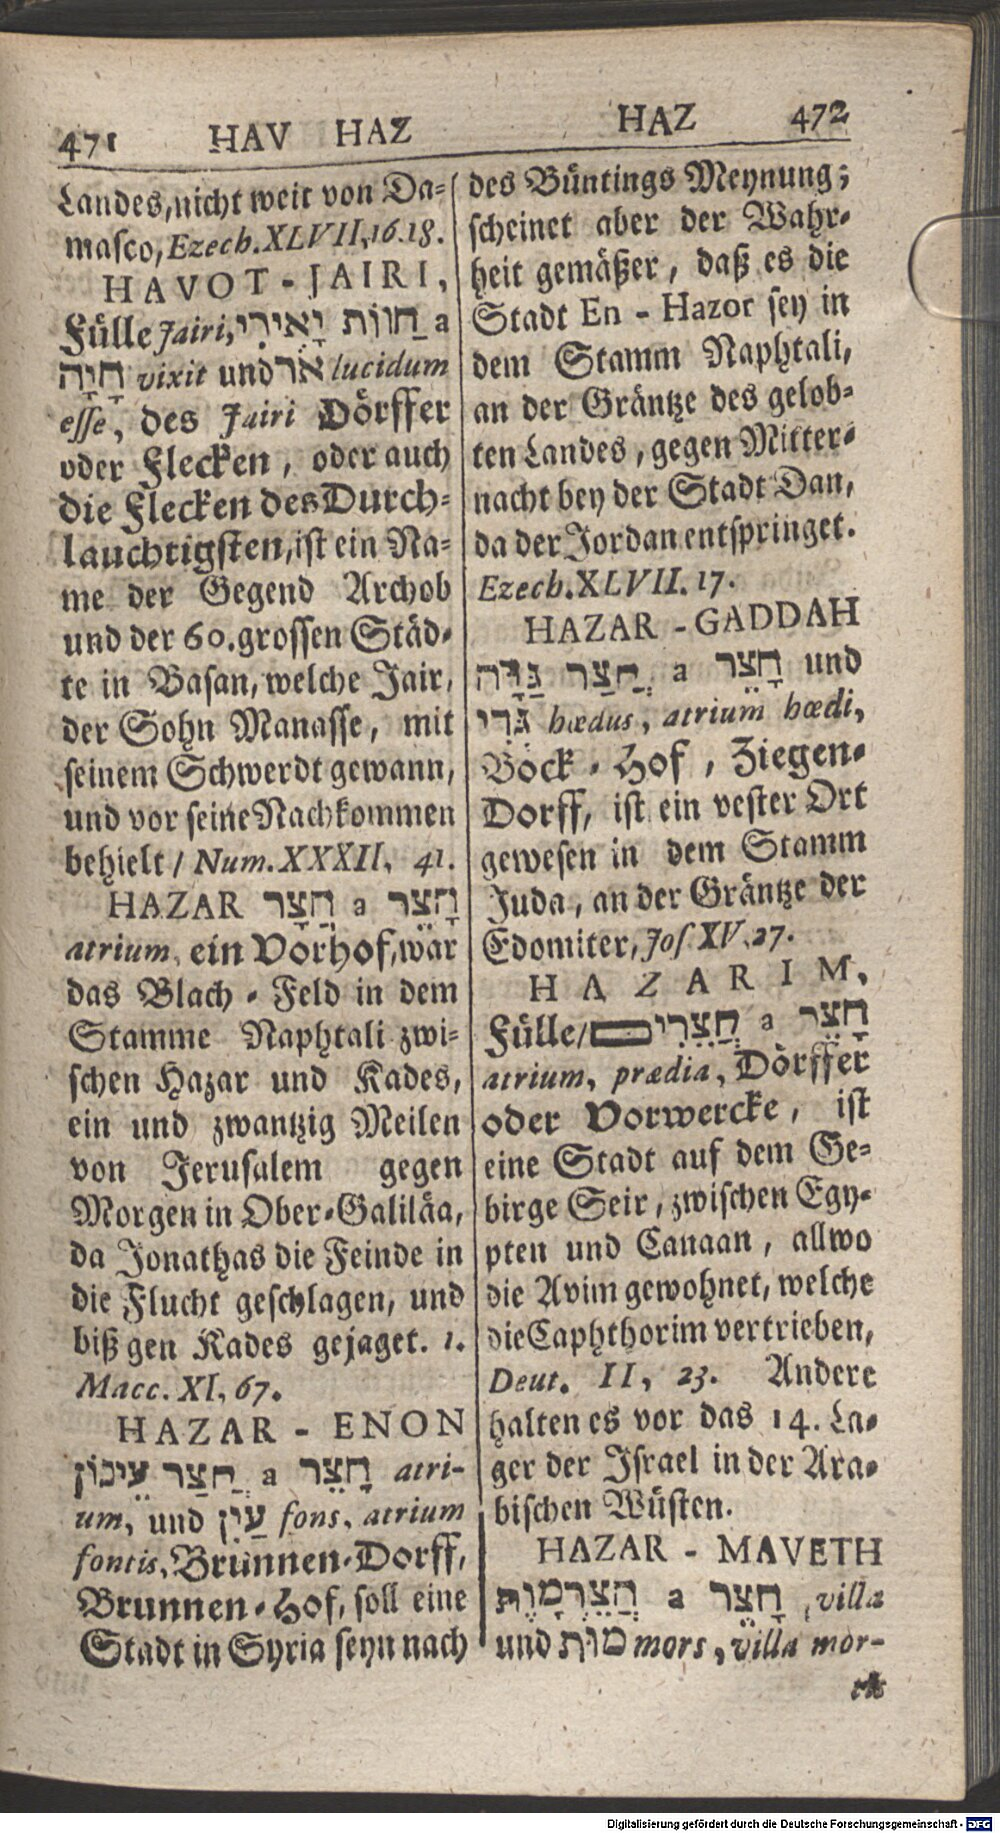 471 HAV HAZ
HAZ 472
Landes, nicht weit von Da-
masco, Ezech. XLVII, 16. 18.
HAVOT-JAIRI,
Fülle Jairi, חַוּוֹת יָאִירִי a
חָיָה vixit und אֹר lucidum
esse, des Jairi Dörffer
oder Flecken, oder auch
die Flecken des Durch-
lauchtigsten, ist ein Na-
me der Gegend Archob
und der 60. grossen Städ-
te in Basan, welche Jair,
der Sohn Manasse, mit
seinem Schwerdt gewann,
und vor seine Nachkommen
behielt / Num. XXXII, 41.
HAZAR חֲצָר a חָצֵר
atrium, ein Vorhof, war
das Blach-Feld in dem
Stamme Naphtali zwi-
schen Hazar und Kades,
ein und zwantzig Meilen
von Jerusalem gegen
Morgen in Ober-Galiläa,
da Jonathas die Feinde in
die Flucht geschlagen, und
biß gen Kades gejaget. 1.
Macc. XI, 67.
HAZAR-ENON
חֲצַר עֵינוֹן a חָצֵר atri-
um, und עַיִן fons, atrium
fontis, Brunnen-Dorff,
Brunnen-Hof, soll eine
Stadt in Syria seyn nach
des Büntings Meynung;
scheinet aber der Wahr-
heit gemäßer, daß es die
Stadt En-Hazor sey in
dem Stamm Naphtali,
an der Gräntze des gelob-
ten Landes, gegen Mitter-
nacht bey der Stadt Dan,
da der Jordan entspringet.
Ezech. XLVII. 17.
HAZAR-GADDAH
חֲצַר גַּדָּה a חָצֵר und
גְּדִי hœdus, atrium hœdi,
Böck-Hof, Ziegen-
Dorff, ist ein vester Ort
gewesen in dem Stamm
Juda, an der Gräntze der
Edomiter, Jos XV, 27.
HAZARIM,
Fülle / חֲצֵרִים a חָצֵר
atrium, prædia, Dörffer
oder Vorwercke, ist
eine Stadt auf dem Ge-
birge Seir, zwischen Egy-
pten und Canaan, allwo
die Avim gewohnet, welche
die Caphthorim vertrieben,
Deut. II, 23. Andere
halten es vor das 14. La-
ger der Israel in der Ara-
bischen Wüsten.
HAZAR-MAVETH
הֲצַרְמָוֶת a חָצֵר, villa
und מוּת mors, villa mor-
tis
Digitalisierung gefördert durch die Deutsche Forschungsgemeinschaft - DFG